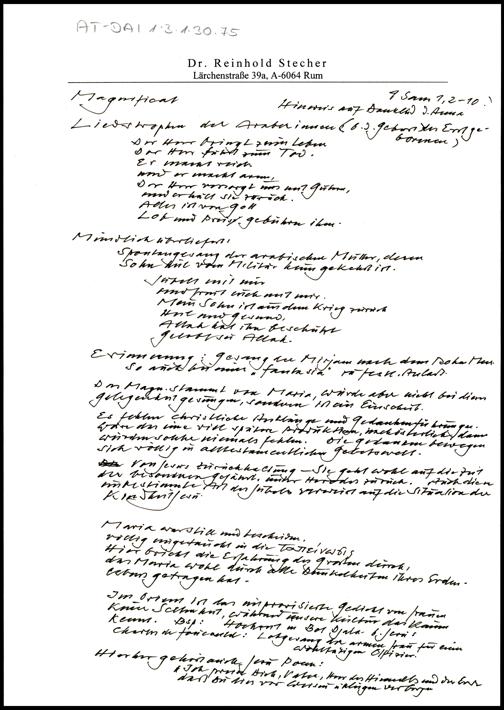 AT-DAI 1.3.1.30.75
Dr. Reinhold Stecher
Lärchenstraße 39a, A-6064 Rum
Magnificat
1 Sam 1,2-10!
Hinweis auf Danklied d. Anna
Liedstrophen der Araberinnen (b. d. Geburt des Erstge-
borenen)
Der Herr bringt zum Leben
Der Herr führt zum Tod.
Er macht reich
und er macht arm,
Der Herr versorgt uns mit Gütern,
und er hält sie zurück.
Alles ist von Gott
Lob und Preis gebühren ihm.
Mündlich überliefert:
Spontangesang der arabischen Mütter, deren
Sohn heil vom Militär heimgekehrt ist.
Jubelt mit mir
und freut euch mit mir.
Mein Sohn ist aus dem Krieg zurück
Heil und gesund,
Allah hat ihn beschützt
Gelobt sei Allah.
Erinnerung: Gesang der Mirjam nach dem
So auch bei einer "fantasia" festl. Anlaß.
Das Magn. stammt von Maria, würde aber nicht bei dieser
Gelegenheit gesungen, sondern ist ein Einschub.
Es fehlen christliche Anklänge und Gedankenführungen.
wäre das eine viel spätere Produktion, dann
würden solche niemals fehlen. Die Gedanken bewegen
sich völlig in alttestamentlicher Gebetswelt.
Von Jesus Zurückhaltung - Sie geht wohl auf die Zeit
der besonderen Gefährd. unter Herodes zurück. Auch die
unbestimmte Art des Jubels verweist auf die Situation der
Kindheit Jesu
Maria war still und bescheiden.
völlig eingetaucht in die Ταπείνωσις
Hier bricht die Erfahrung des Großen durch,
das Maria wohl durch alle Dunkelheiten ihres Erden-
lebens getragen hat.
Im Orient ist das improvisierte Gedicht von Frauen
keine Seltenheit, während unsere Kultur das kaum
kennt. Bsp: Hochzeit in Bet Djala b. Jerus!
Charles de Foucauld: Lobgesang der armen Frau für einen
wohltätigen Offizier.
Hierher gehört auch Jesu Poem:
"Ich preise Dich, Vater, Herr des Himmels und der Erde
daß Du dies vor Weisen u. Klugen verborgen